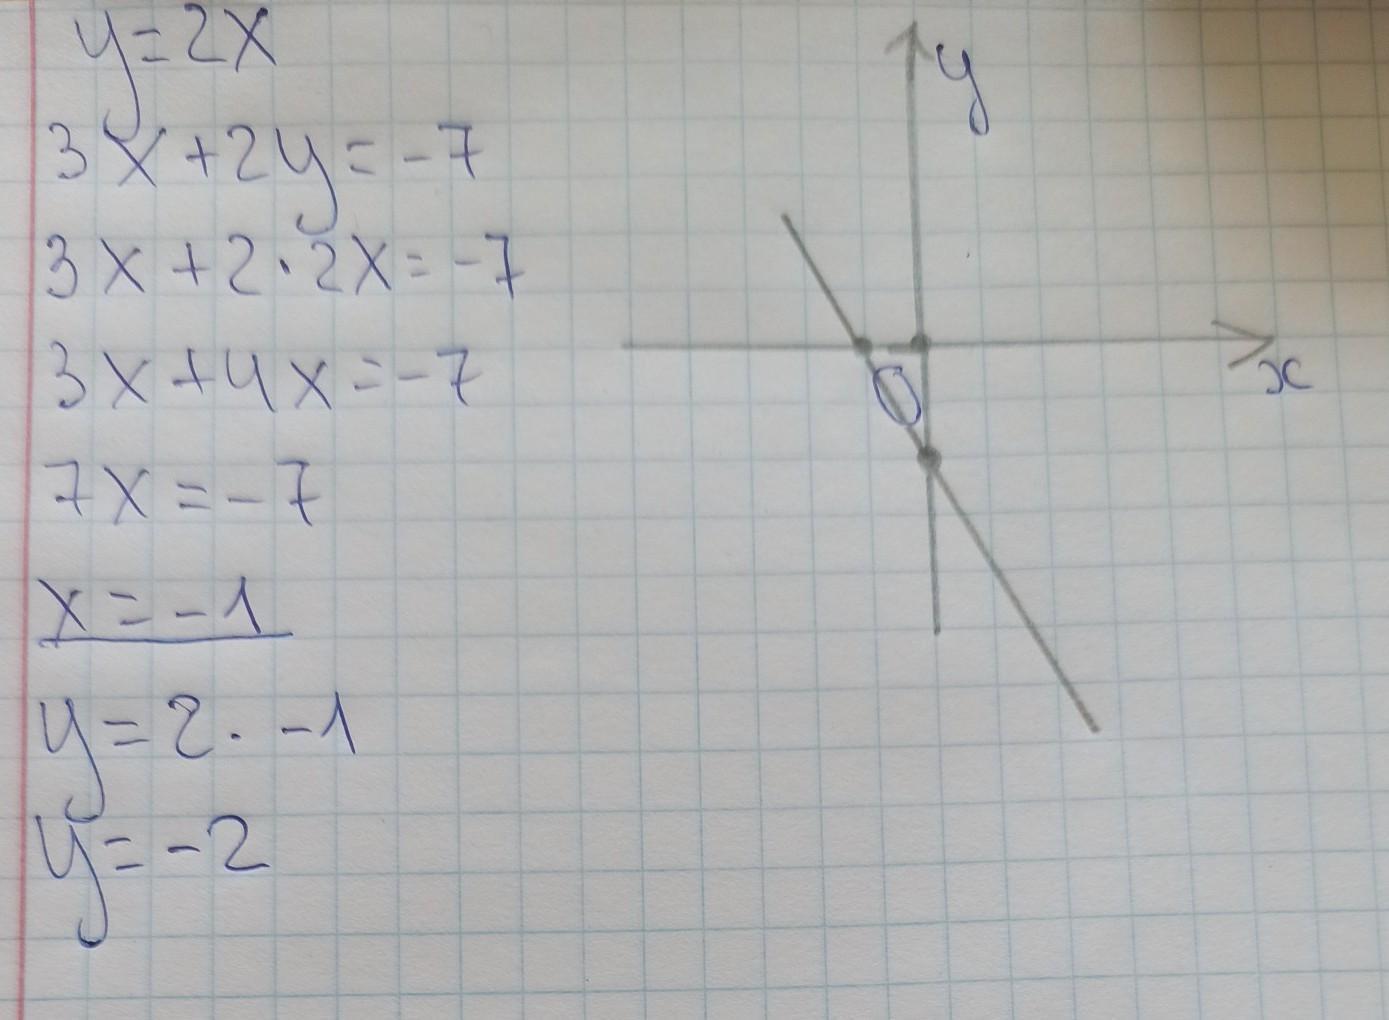 y=2x
3x+2y=-7
3x+2·2x=-7
3x+4x=-7
7x=-7
x=-1
y=2·-1
y=-2
y
0
x